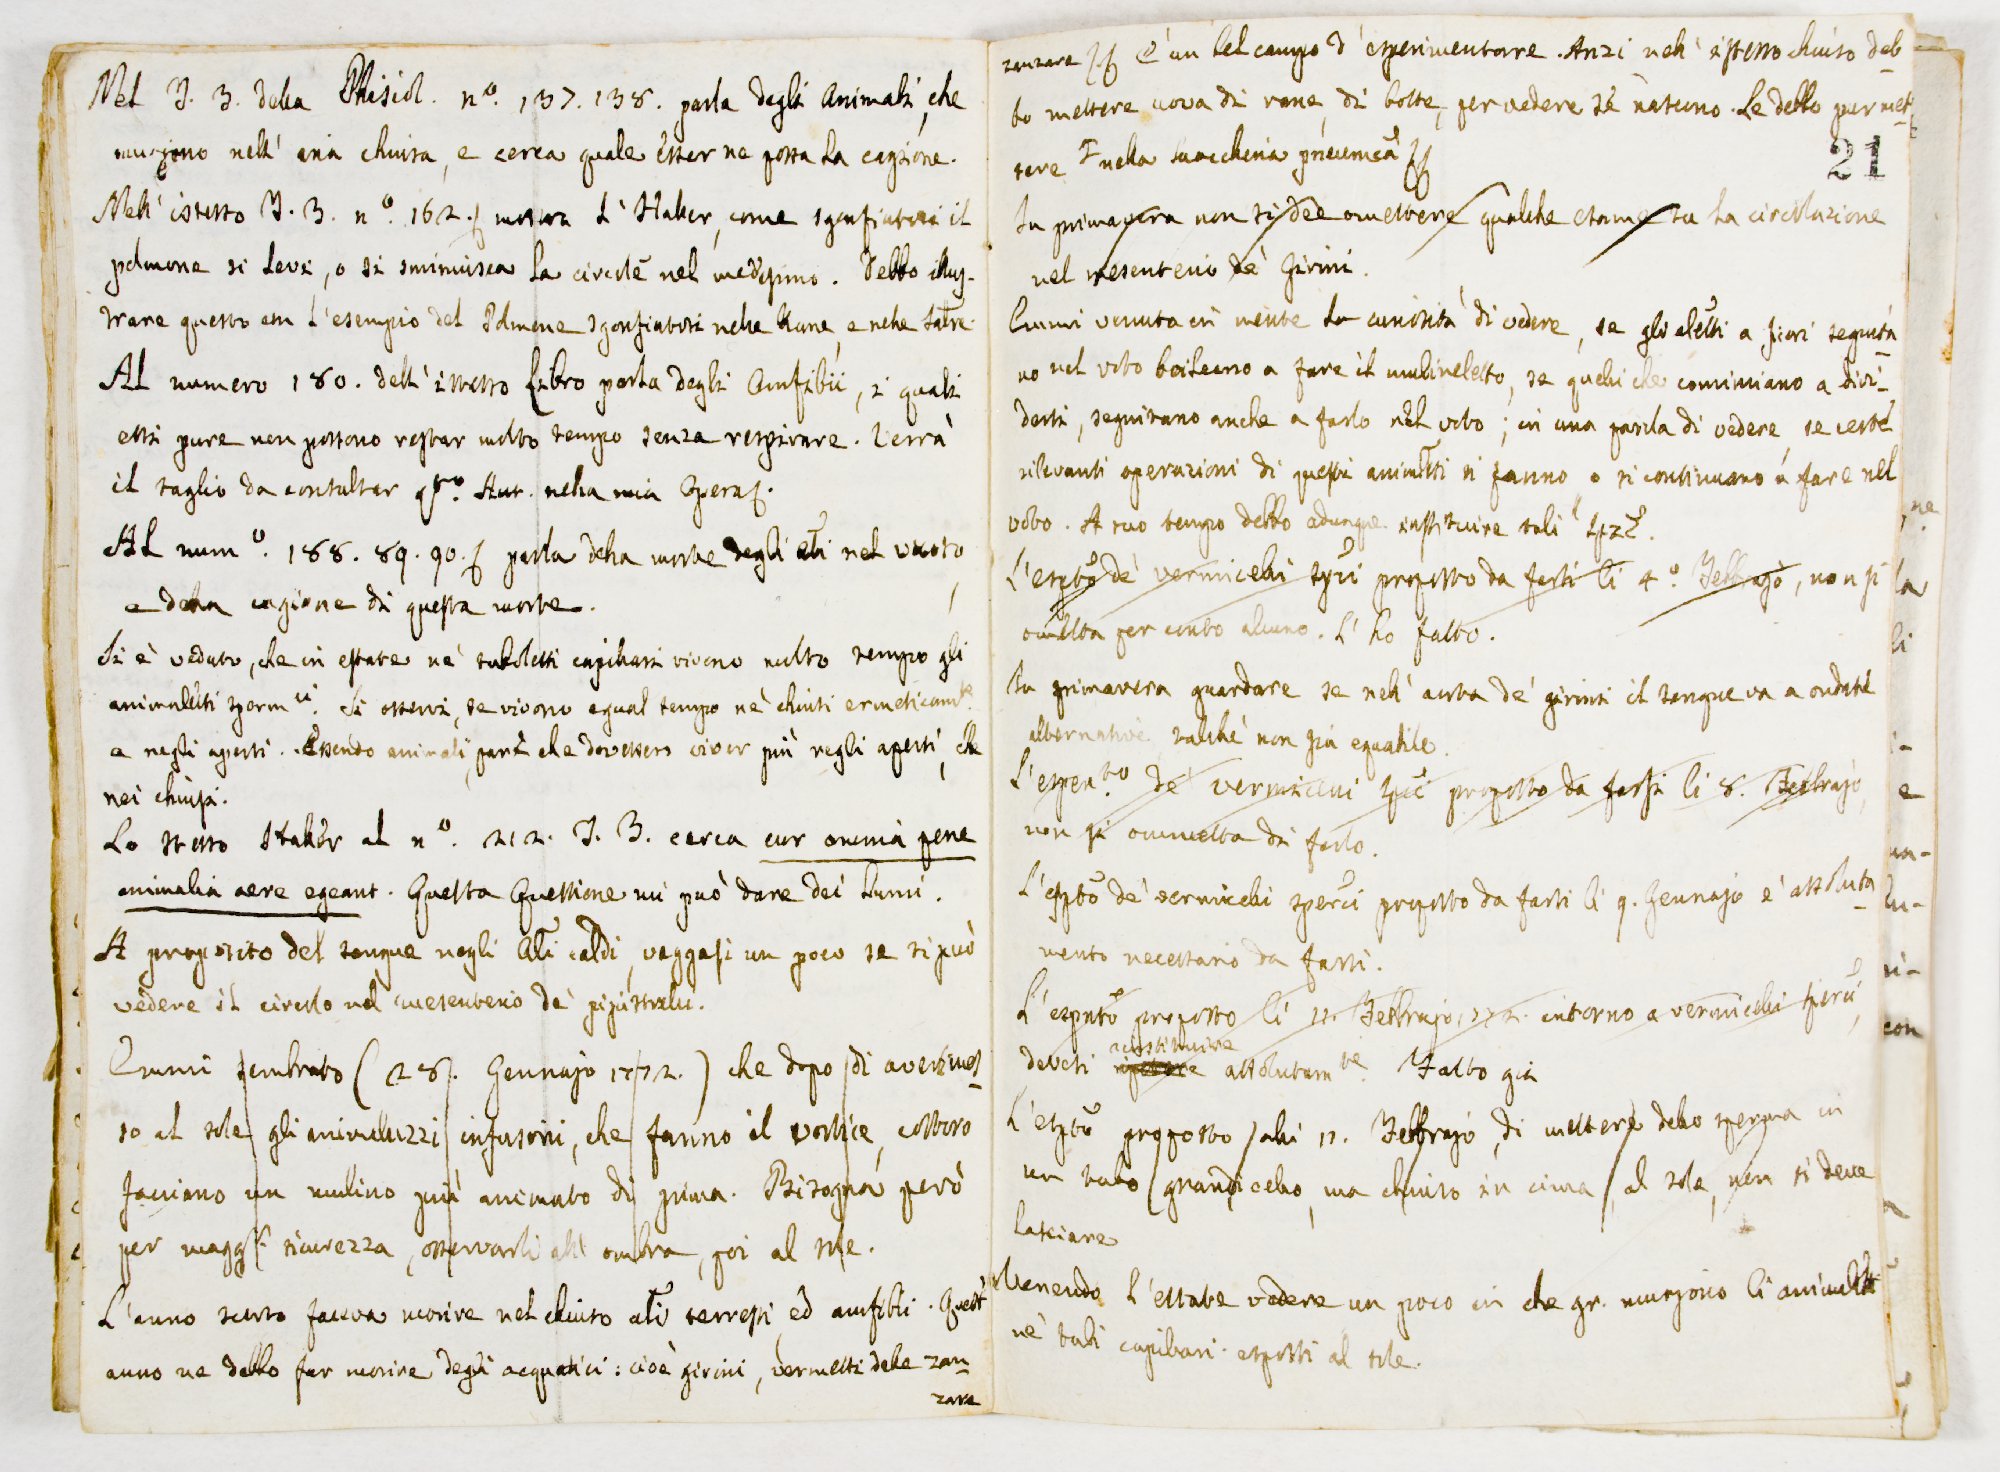 Nel T. 3. della Phisiol. nº. 137. 138. parla degli Animali, che
muojono nell' aria chiusa, e cerca quale esser ne possa la cagione.
Nell' istesso T. 3. nº. 162. mostra l' Haller, come sgonfiatosi il
polmone si levi, o si sminuisca la circole nel medesimo. Debbo illus-
trare questo con l'esempio del Polmone sgonfiatosi nelle Rane, e nelle Salre.
Al numero 180. dell' istesso Libro parla degli Amfibii, i quali
essi pure non possono restar molto tempo senza respirare. Verrà
il taglio da consultar qsto. Aut. nella mia Opera.
Al numº. 188. 89. 90. parla della morte degli ali nel vuoto
e della cagione di questa morte.
Si è veduto, che in estate ne' tuboletti capillari vivono molto tempo gli
animaletti spermci. Si osservi, se vivono egual tempo ne' chiusi ermeticamte.
e negli aperti. Essendo animali, pare che dovessero viver più negli aperti, che
nei chiusi.
Lo stesso Haller al nº. 212. T. 3. cerca cur omnia pene
animalia aere egeant. Questa Questione mi può dare dei lumi.
A proposito del sangue negli Ali caldi, veggasi un poco se si può
vedere il circolo nel mesenterio de' pipistrelli.
Emmi sembrato (28. Gennajo 1772.) che dopo di aver mes-
so al sole gli animaluzzi infusorii, che fanno il vortice, costoro
facciano un mulino più animato di prima. Bisogna però
per maggr. sicurezza, osservarli all' ombra, poi al sole.
L'anno scorso faceva morire nel chiuso ali terrestri ed amfibii. Quest'
anno ne debbo far morire degli acquatici: cioè girini, vermetti delle zan-
zare
zanzare È un bel campo d' esperimentare. Anzi nell' istesso chiuso deb-
bo mettere uova di rane, di botte, per vedere se nascono. Le debbo pur met-
tere nella macchina pneumca
21
In primavera non si dee omettere qualche esame su la circolazione
nel mesenterio de' Girini.
Emmi venuta in mente la curiosità di vedere, se gli aletti a fiori seguita-
no nel voto boileano a fare il mulinelletto, se quelli che cominciano a divi-
dersi, seguitano anche a farlo nel voto; in una parola di vedere, se certe
rilevanti operazioni di questi animaletti si fanno o si continuano a fare nel
voto. A suo tempo debbo adunque instituire tali spze.
L'espto de' vermicelli spci proposto da farsi li 4º. Febbrajo, non si
ometta per conto alcuno. L' ho fatto.
In primavera guardare se nell' aorta de' girini il sangue va a ondate
alternative talchè non sia equabile.
L'esperto. de' vermicelli spci proposto da farsi li 8. Febbrajo,
non si ommetta di farlo.
L'espto de' vermicelli sperci proposto da farsi li 9. Gennajo è assoluta-
mente necessario da farsi.
L'espto proposto li 11. Febbrajo, 772. intorno a vermicelli sperci,
devesi instituire assolutamte. Fatto già
L'espto proposto alli 11. Febbrajo, di mettere dello sperma in
un tubo grandicello, ma chiuso in cima, al sole, non si deve
lasciare
Venendo l'estate vedere un poco in che gr. muojono li animaletti
ne' tubi capillari esposti al sole.